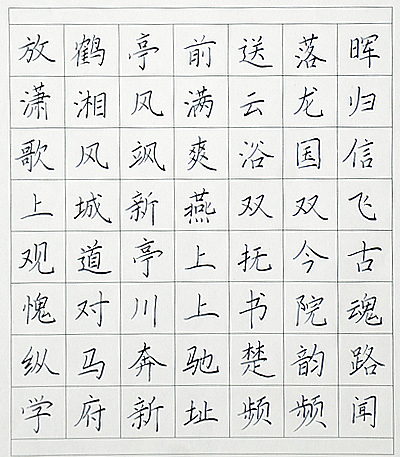 放鹤亭前送落晖
潇湘风满云龙归
歌风飒爽浴国信
上城新燕双双飞
观道亭上抚今古
愧对川上书院魂
纵马奔驰楚韵路
学府新址频频闻